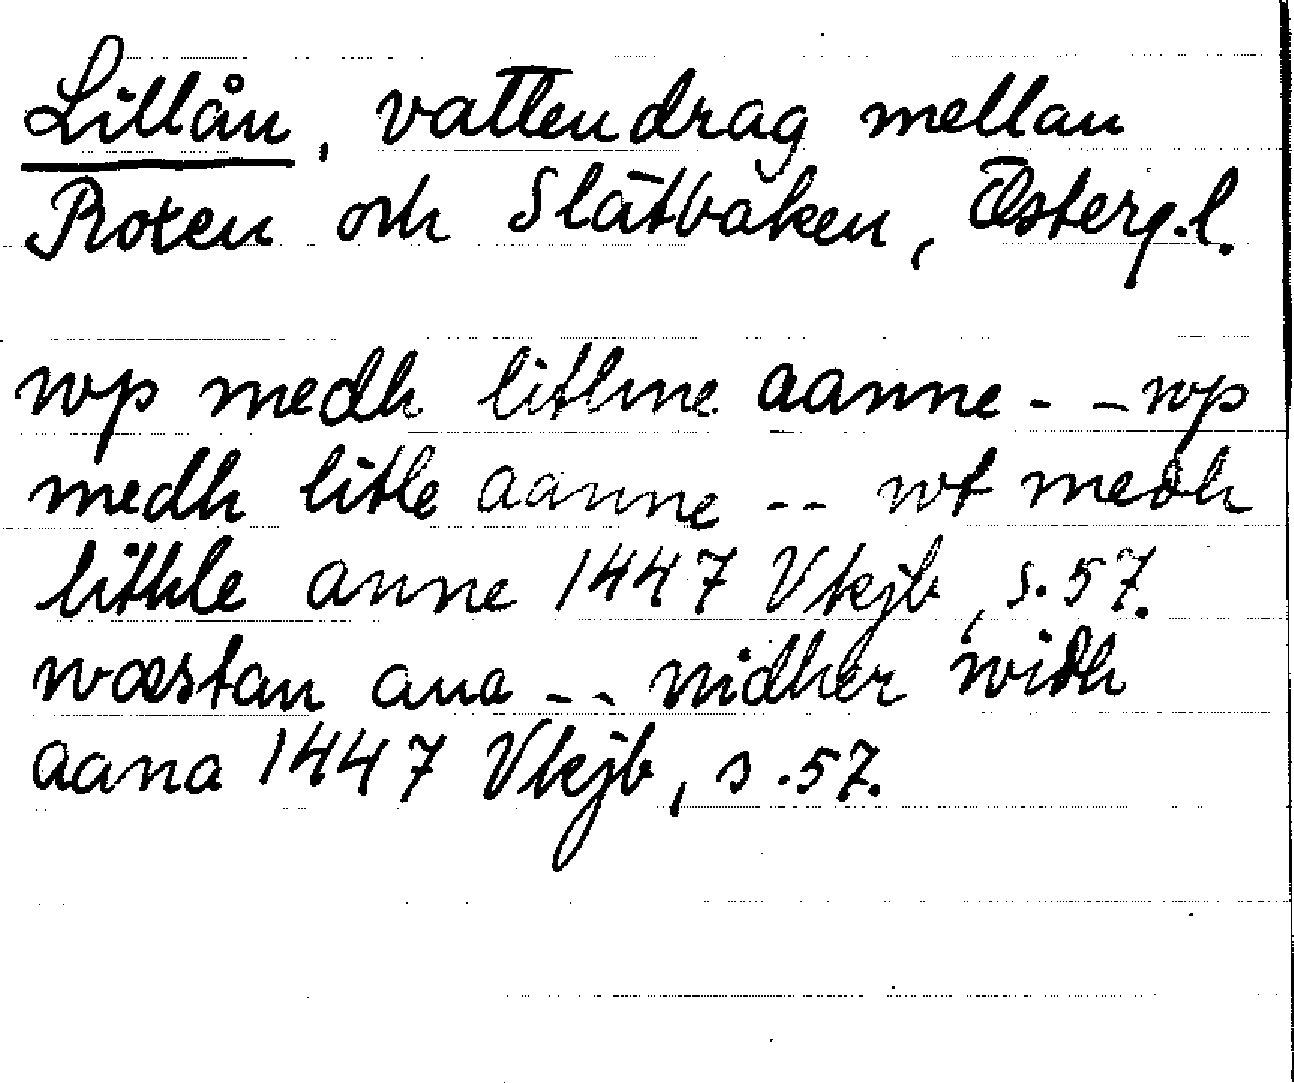 Lillån, vattendrag mellan
Roxen och Slätbaken, Österg.l.
wp medh litlme aanne - - wp
medh litle aanne - - wt medh
lithle anne 1447 Vkjb, s. 57.
wæstan ana - - nidher widh
aana 1447 Vkjb, s. 57.